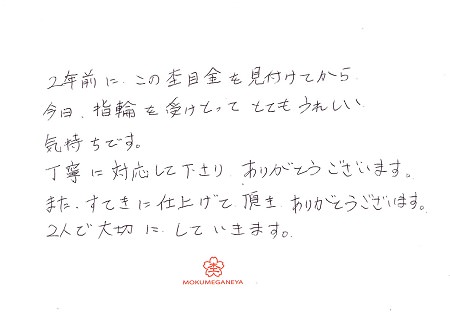 2年前に、この杢目金を見付けてから
今日、指輪を受けとって とてもうれしい
気持ちです。
丁寧に対応して下さり、ありがとうございます。
また、すてきに仕上げて頂き、ありがとうございます。
2人で大切に していきます。
杢
MOKUMEGANEYA